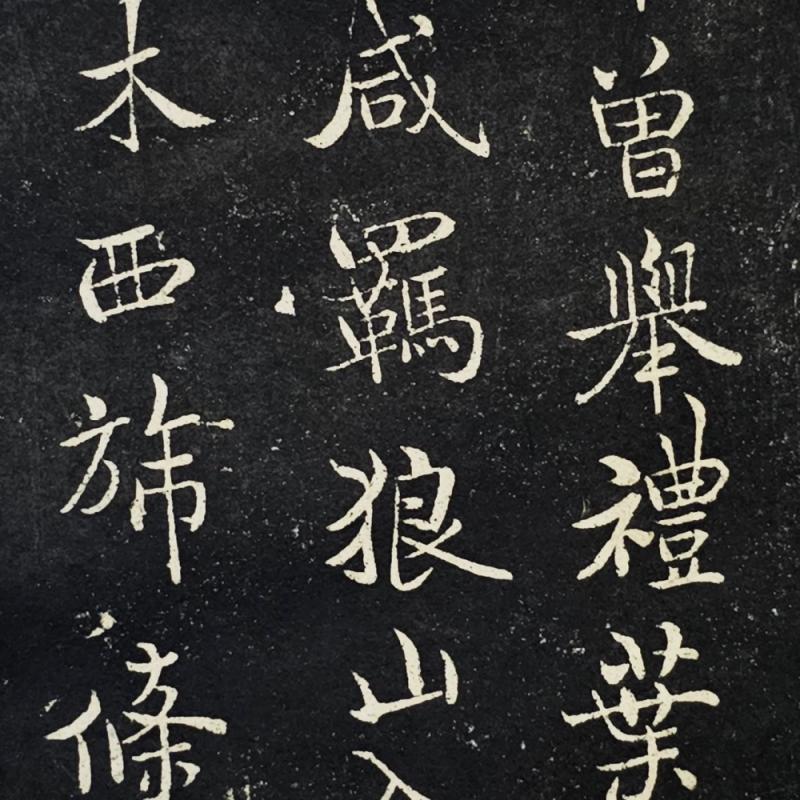 曾舉禮葉
咸羈狼山入
木西旆條